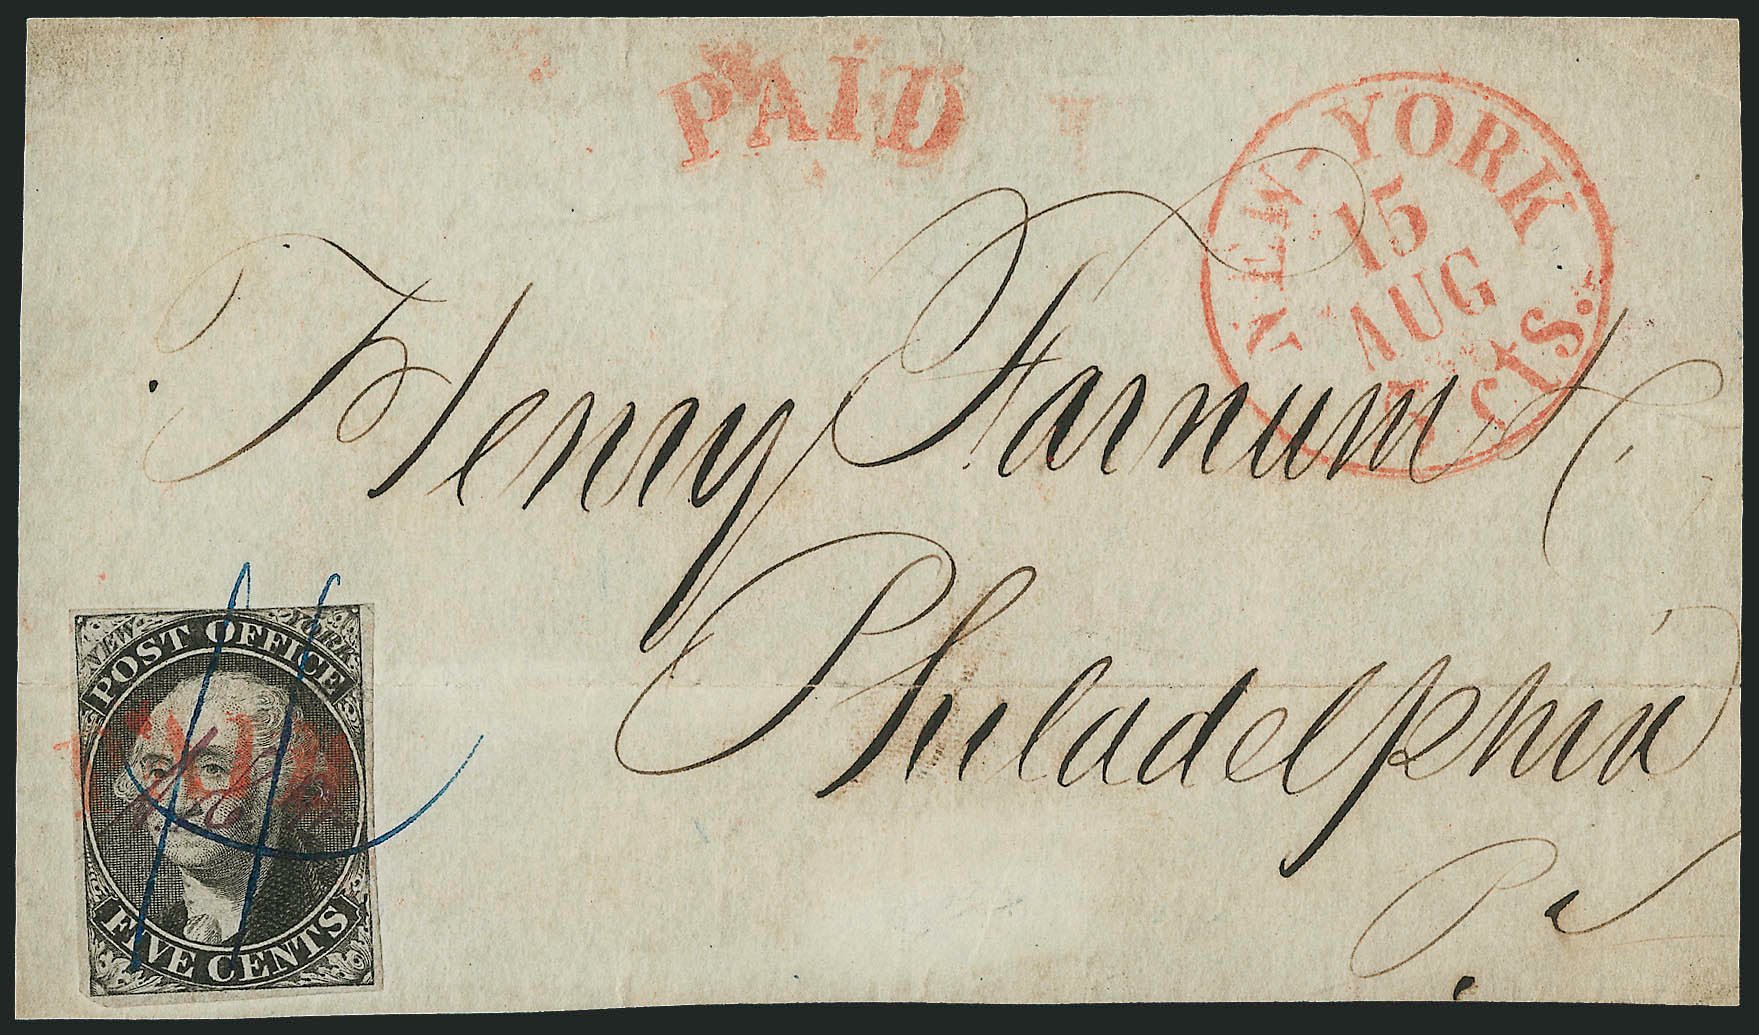 PAID
NEW-YORK
15
AUG
5 cts.
Henry Farnum
Philadelphia
Pa
NEW YORK
POST OFFICE
PAID
FIVE CENTS